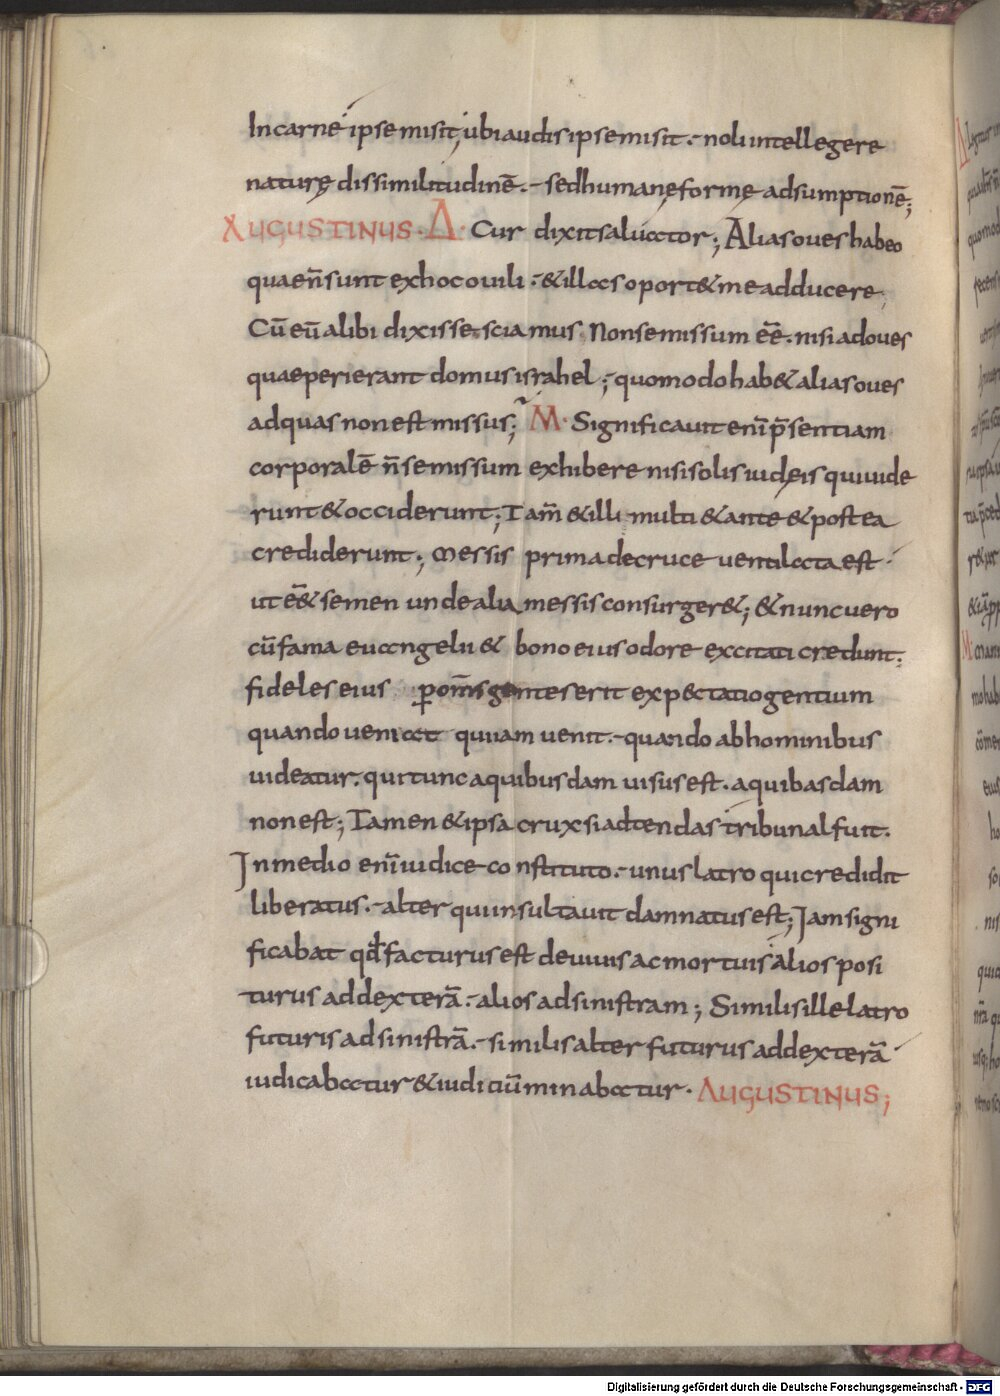 In carne ipse misit; ubi audis ipse misit. noli intellegere
naturę dissimilitudinē. sed humanę formę adsumptionē;
AUGUSTINUS. Δ. Cur dixit saluator; Alias oues habeo
quae n̄ sunt ex hoc ouili. & illas oport& me adducere,
Cū eū alibi dixisse sciamus. Non se missum eē̄. nisi ad oues
quae perierant domus israhel; quomodo hab& alias oues
ad quas non est missus; M. Significauit eni̅ p̄sentiam
corporalē n̄ se missum exhibere nisi solis iudęis qui uide
runt & occiderunt; Tam̄ & illi multi & ante & postea
crediderunt; Messis prima de cruce uentilata est
ut eē̄& semen unde alia messis consurger&; & nunc uero
cū fama euangelii & bono eius odore excitati credunt;
fideles eius ꝑ om̄s gentes erit exp&ctatio gentium
quando ueniat qui iam uenit. quando ab hominibus
uideatur. qui tunc a quibusdam uisus est. a quibasdam
non est; Tamen & ipsa crux si adtendas tribunal fuit.
In medio eni̅ iudice constituto. unus latro qui credidit
liberatus. alter qui insultauit damnatus est; Iam signi
ficabat qđ facturus est de uiuis ac mortuis alios posi
turus ad dexterā. alios ad sinistram; Similis ille latro
futuris ad sinistrā. similis alter futurus ad dexterā
iudicabatur & iudiciū minabatur. AUGUSTINUS;